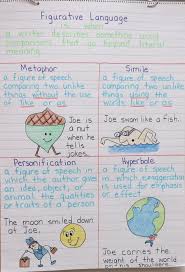 Figurative Language
is when
a writer describes something using
comparisons that go beyond literal
meaning.
Metaphor
a figure of speech
comparing two unlike
things without the use
of like or as
Joe is
a nut
when he
tells
jokes.
Simile
a figure of speech
comparing two unlike
things using the
words like or as
Joe swam like a fish.
Personification
a figure of speech in
which the author gives
an idea, object, or
animal the qualities
or traits of a person
The moon smiled down
at Joe.
Hyperbole
a figure of speech
in which exaggeration
is used for emphasis
or effect
Joe carries the
weight of the world
on his shoulders